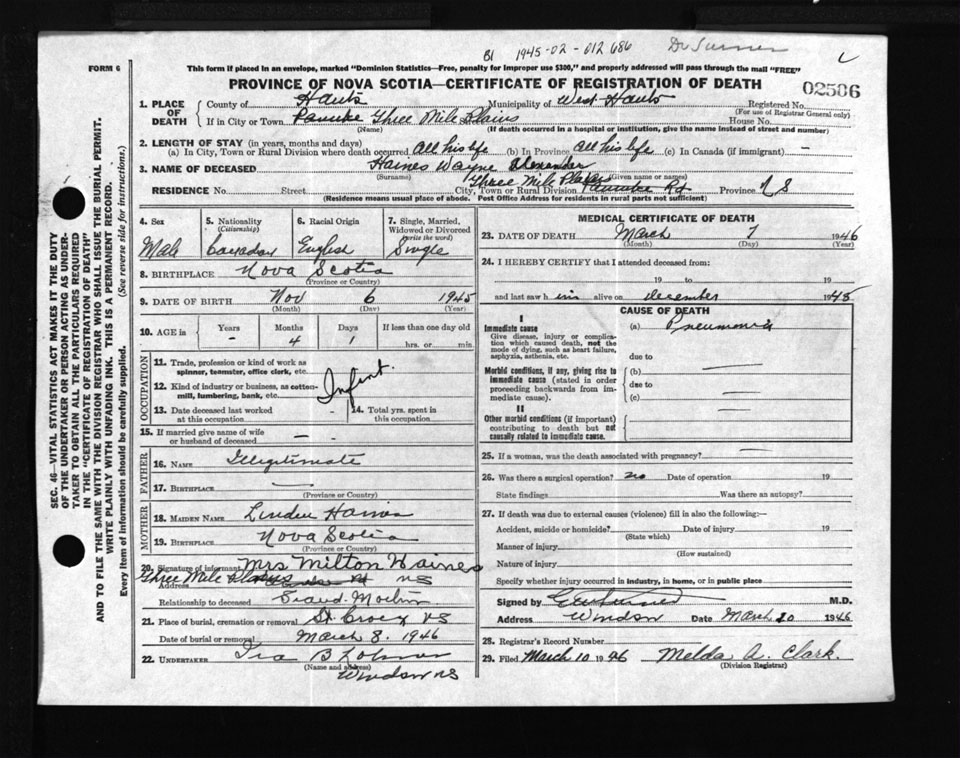 B1 1945-02-012686 Dr Turner
FORM 6
This form if placed in an envelope, marked "Dominion Statistics—Free, penalty for improper use $300," and properly addressed will pass through the mail "FREE"
PROVINCE OF NOVA SCOTIA—CERTIFICATE OF REGISTRATION OF DEATH
02506
1. PLACE OF DEATH County of Hants Municipality of West Hants Registered No.
(For use of Registrar General only)
If in City or Town Panuke Three Mile Plains Street House No.
(Name) (If death occurred in a hospital or institution, give the name instead of street and number)
2. LENGTH OF STAY (in years, months and days)
(a) In City, Town or Rural Division where death occurred All his life (b) In Province all his life (c) In Canada (if immigrant) —
3. NAME OF DECEASED Haines Wayne Alexander
(Surname) (Given name or names)
Three Mile Plains
RESIDENCE No. Street City, Town or Rural Division Panuke Rd Province N S
(Residence means usual place of abode. Post Office Address for residents in rural parts not sufficient)
SEC. 46—VITAL STATISTICS ACT MAKES IT THE DUTY
OF THE UNDERTAKER OR PERSON ACTING AS UNDER-
TAKER TO OBTAIN ALL THE PARTICULARS REQUIRED
IN THE "CERTIFICATE OF REGISTRATION OF DEATH"
AND TO FILE THE SAME WITH THE DIVISION REGISTRAR WHO SHALL ISSUE THE BURIAL PERMIT.
WRITE PLAINLY WITH UNFADING INK. THIS IS A PERMANENT RECORD.
Every item of information should be carefully supplied. (See reverse side for instructions.)
4. Sex 5. Nationality 6. Racial Origin 7. Single, Married,
(Citizenship) Widowed or Divorced
(write the word)
Male Canadian English Single
8. BIRTHPLACE Nova Scotia
(Province or Country)
9. DATE OF BIRTH Nov 6 1945
(Month) (Day) (Year)
10. AGE in Years Months Days If less than one day old
— 4 1 hrs. or min.
OCCUPATION
11. Trade, profession or kind of work as
spinner, teamster, office clerk, etc.
12. Kind of industry or business, as cotton-
mill, lumbering, bank, etc. Infant
13. Date deceased last worked
at this occupation
14. Total yrs. spent in
this occupation
15. If married give name of wife
or husband of deceased —
FATHER
16. NAME Illegitimate
17. BIRTHPLACE —
(Province or Country)
MOTHER
18. MAIDEN NAME Linden Haines
19. BIRTHPLACE Nova Scotia
(Province or Country)
20. Signature of informant Mrs Milton Haines
Address Three Mile Plains NS
Relationship to deceased Grand Mother
21. Place of burial, cremation or removal St Croix NS
Date of burial or removal March 8. 1946
22. UNDERTAKER Ira B
(Name and address)
Windsor NS
MEDICAL CERTIFICATE OF DEATH
23. DATE OF DEATH March 7 1946
(Month) (Day) (Year)
24. I HEREBY CERTIFY that I attended deceased from:
19 to 19
and last saw him alive on December 1945
CAUSE OF DEATH
I
Immediate cause (a) Pneumonia
Give disease, injury or complica-
tion which caused death, not the
mode of dying, such as heart failure,
asphyxia, asthenia, etc. due to
Morbid conditions, if any, giving rise to (b) —
immediate cause (stated in order due to
proceeding backwards from im-
mediate cause). (c) —
II
Other morbid conditions (if important)
contributing to death but not
causally related to immediate cause.
25. If a woman, was the death associated with pregnancy? —
26. Was there a surgical operation? no Date of operation 19
State findings Was there an autopsy?
27. If death was due to external causes (violence) fill in also the following:—
Accident, suicide or homicide? Date of injury 19
(State which)
Manner of injury
(How sustained)
Nature of injury
Specify whether injury occurred in industry, in home, or in public place
Signed by M.D.
Address Windsor Date March 10 1946
28. Registrar's Record Number
29. Filed March 10 1946 Melda A. Clark.
(Division Registrar)